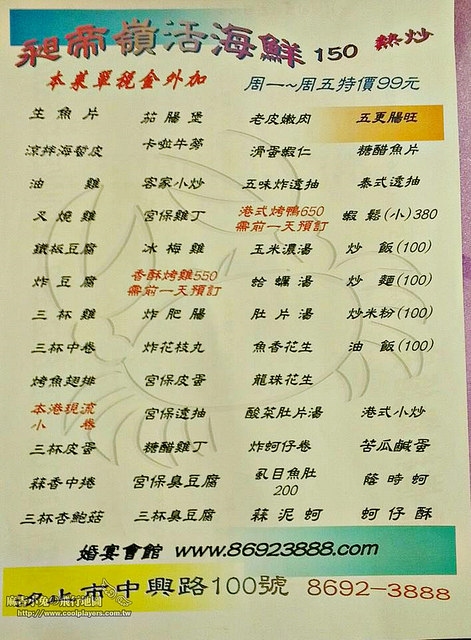 昶帝嶺活海鮮 150 熱炒
本菜單稅金外加 周一~周五特價99元
生魚片 茄腸煲 老皮嫩肉 五更腸旺
涼拌海蜇皮 卡啦牛蒡 滑蛋蝦仁 糖醋魚片
油雞 客家小炒 五味炸透抽 泰式透抽
叉燒雞 宮保雞丁 港式烤鴨650 蝦鬆(小)380
需前一天預訂
鐵板豆腐 冰梅雞 玉米濃湯 炒飯(100)
炸豆腐 香酥烤雞550 蛤蠣湯 炒麵(100)
需前一天預訂
三杯雞 炸肥腸 肚片湯 炒米粉(100)
三杯中卷 炸花枝丸 魚香花生 油飯(100)
烤魚翅排 宮保皮蛋 龍珠花生
本港現流 宮保透抽 酸菜肚片湯 港式小炒
小卷
三杯皮蛋 糖醋雞丁 炸蚵仔卷 苦瓜鹹蛋
蒜香中捲 宮保臭豆腐 虱目魚肚 蔭時蚵
200
三杯杏鮑菇 三杯臭豆腐 蒜泥蚵 蚵仔酥
婚宴會館 www.86923888.com
上市中興路100號 8692-3888
http://www.coolplayers.com.tw